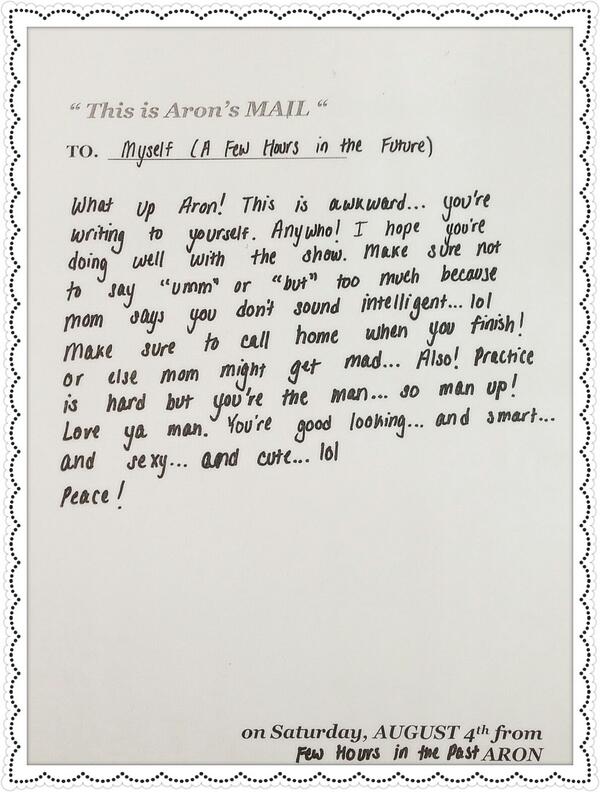 “ This is Aron's MAIL “
TO. Myself (A Few Hours in the Future)
What up Aron! This is awkward... you're
writing to yourself. Anywho! I hope you're
doing well with the show. Make sure not
to say "umm" or "but" too much because
mom says you don't sound intelligent... lol
Make sure to call home when you finish!
or else mom might get mad... Also! Practice
is hard but you're the man... so man up!
Love ya man. You're good looking... and smart...
and sexy... and cute... lol
Peace!
on Saturday, AUGUST 4th from
Few Hours in the Past ARON